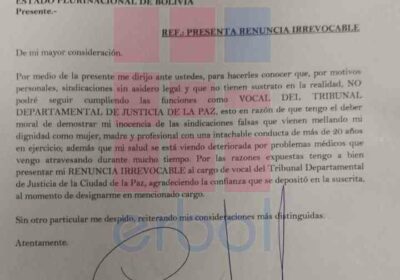 ESTADO PLURINACIONAL DE BOLIVIA
Presente.-
REF.: PRESENTA RENUNCIA IRREVOCABLE
De mi mayor consideración.
Por medio de la presente me dirijo ante ustedes, para hacerles conocer que, por motivos
personales, sindicaciones sin asidero legal y que no tienen sustrato en la realidad, NO
podré seguir cumpliendo las funciones como VOCAL DEL TRIBUNAL
DEPARTAMENTAL DE JUSTICIA DE LA PAZ, esto en razón de que tengo el deber
moral de demostrar mi inocencia de las sindicaciones falsas que vienen mellando mi
dignidad como mujer, madre y profesional con una intachable conducta de más de 20 años
en ejercicio; además que mi salud se está viendo deteriorada por problemas médicos que
vengo atravesando durante mucho tiempo. Por las razones expuestas tengo a bien
presentar mi RENUNCIA IRREVOCABLE al cargo de vocal del Tribunal Departamental
de Justicia de la Ciudad de la Paz, agradeciendo la confianza que se depositó en la suscrita,
al momento de designarme en mencionado cargo.
Sin otro particular me despido, reiterando mis consideraciones más distinguidas.
Atentamente.
erbol